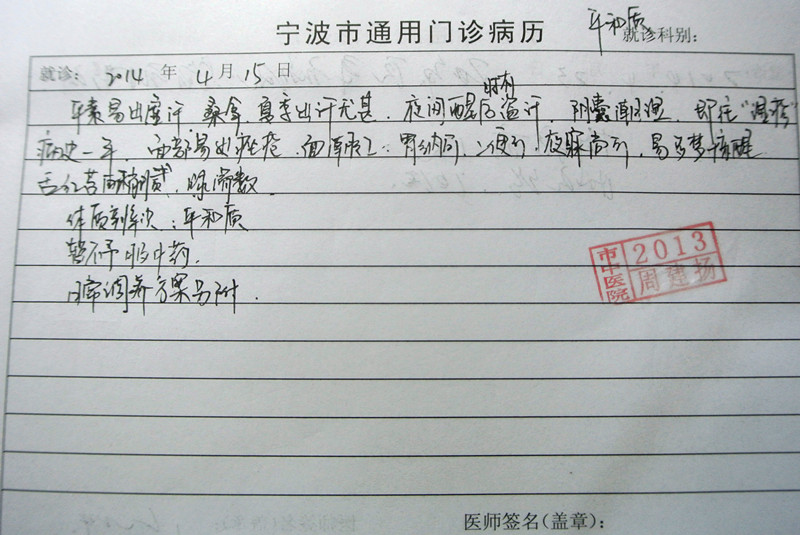 宁波市通用门诊病历
平和质
就诊科别：
就诊： 2014 年 4 月 15 日
平素易出虚汗，桑拿、夏季出汗尤甚，夜间醒后时有盗汗，阴囊潮湿，即往“湿疹”
病史一年，面部易出痤疮，面潮红，胃纳可，二便可，夜寐尚可，易多梦
舌红苔，脉滑数．
体质辨识：平和质
暂不予服中药．
日常调养方案另附．
市中医院
2013
周建扬
医师签名(盖章)：